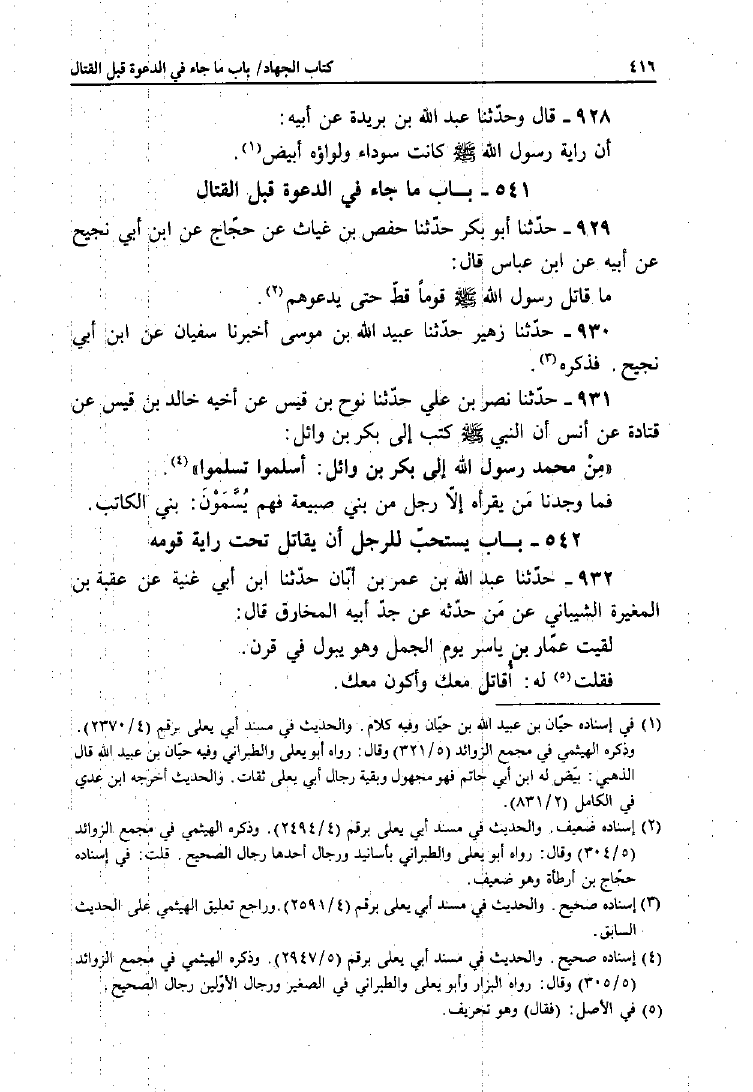 ٤١٦ كتاب الجهاد/ باب ما جاء في الدعوة قبل القتال
٩٢٨ ـ قال وحدّثنا عبد الله بن بريدة عن أبيه:
أن راية رسول الله ﷺ كانت سوداء ولواؤه أبيض(١).
٥٤١ ـ بـاب ما جاء في الدعوة قبل القتال
٩٢٩ ـ حدّثنا أبو بكر حدّثنا حفص بن غياث عن حجّاج عن ابن أبي نجيح
عن أبيه عن ابن عباس قال:
ما قاتل رسول الله ﷺ قوماً قطّ حتى يدعوهم(٢).
٩٣٠ ـ حدّثنا زهير حدّثنا عبيد الله بن موسى أخبرنا سفيان عن ابن أبي
نجيح. فذكره(٣).
٩٣١ ـ حدّثنا نصر بن علي حدّثنا نوح بن قيس عن أخيه خالد بن قيس عن
قتادة عن أنس أن النبي ﷺ كتب إلى بكر بن وائل:
«مِنْ محمد رسول الله إلى بكر بن وائل: أسلموا تسلموا»(٤).
فما وجدنا مَن يقرأه إلاّ رجل من بني صبيعة فهم يُسَّمَوْنَ: بني الكاتب.
٥٤٢ ـ بـاب يستحبّ للرجل أن يقاتل تحت راية قومه
٩٣٢ ـ حدّثنا عبد الله بن عمر بن أبّان حدّثنا ابن أبي غنية عن عقبة بن
المغيرة الشيباني عن مَن حدّثه عن جدّ أبيه المخارق قال:
لقيت عمّار بن ياسر يوم الجمل وهو يبول في قرن.
فقلت(٥) له: أقاتل معك وأكون معك.
(١) في إسناده حيّان بن عبيد الله بن حيّان وفيه كلام. والحديث في مسند أبي يعلى برقم (٢٣٧٠/٤).
وذكره الهيثمي في مجمع الزوائد (٣٢١/٥) وقال: رواه أبو يعلى والطبراني وفيه حيّان بن عبيد الله قال
الذهبي: بيّض له ابن أبي حاتم فهو مجهول وبقية رجال أبي يعلى ثقات. والحديث أخرجه ابن عدي
في الكامل (٨٣١/٢).
(٢) إسناده ضعيف. والحديث في مسند أبي يعلى برقم (٢٤٩٤/٤). وذكره الهيثمي في مجمع الزوائد
(٣٠٤/٥) وقال: رواه أبو يعلى والطبراني بأسانيد ورجال أحدها رجال الصحيح. قلت: في إسناده
حجّاج بن أرطأة وهو ضعيف.
(٣) إسناده صحيح. والحديث في مسند أبي يعلى برقم (٢٥٩١/٤). وراجع تعليق الهيثمي على الحديث
السابق.
(٤) إسناده صحيح. والحديث في مسند أبي يعلى برقم (٢٩٤٧/٥). وذكره الهيثمي في مجمع الزوائد
(٣٠٥/٥) وقال: رواه البزار وأبو يعلى والطبراني في الصغير ورجال الأوّلين رجال الصحيح.
(٥) في الأصل: (فقال) وهو تحريف.